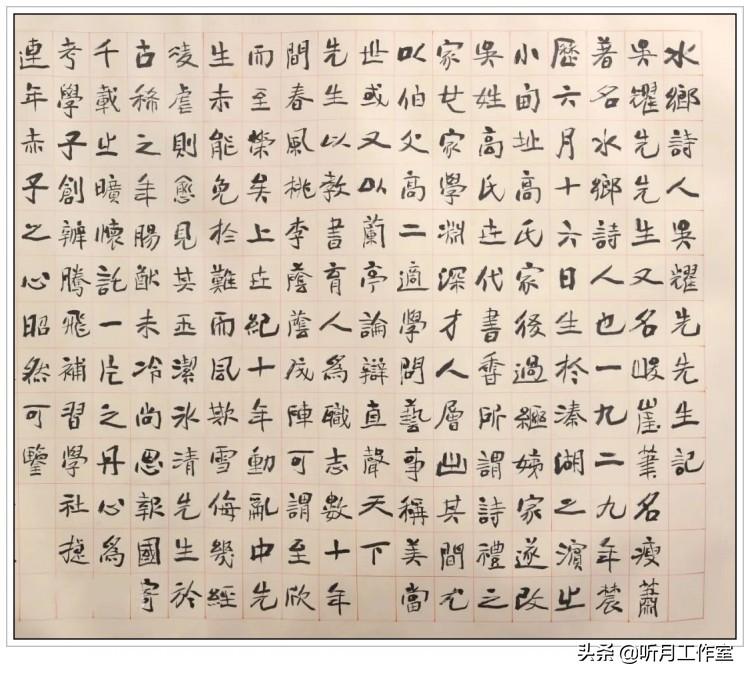 水鄉詩人吳耀先先生記
吳耀先先生又名峻崖筆名瘦蕭
著名水鄉詩人也一九二九年農
歷六月十六日生於溱湖之濱之
小甸址高氏家後過繼姨家遂改
吳姓高氏世代書香所謂詩禮之
家家學淵深才人層出其間尤
以伯父高二適學問藝事稱美當
世或又以蘭亭論辯直聲天下
先生以教書育人為職志數十年
間春風桃李蔭蔭成陣可謂至欣
而至榮矣上世紀十年動亂中先
生未能免於難而風欺雪侮幾經
凌虐則愈見其玉潔冰清先生於
古稀之年腸猷未冷尚思報國寄
千載之曠懷託一片之丹心為
考學子創辦騰飛補習學社捷
連年赤子之心昭然可鑒
头条 @听月工作室